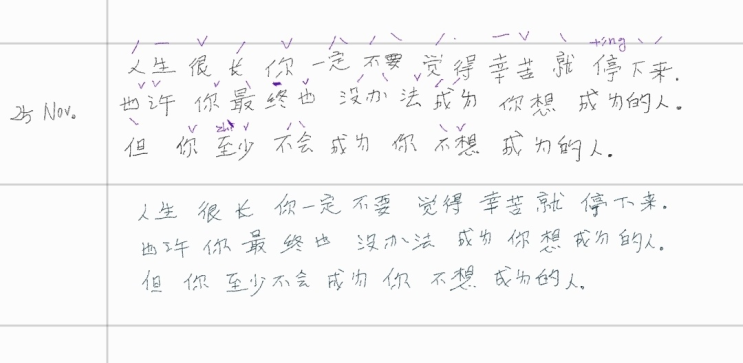 人生很长 你一定不要 觉得辛苦就 停下来.
25 Nov.
也许你最终也 没办法成为 你想 成为的人.
但 你 至少不会成为 你 不想 成为的人.
人生很长 你一定不要 觉得辛苦就 停下来.
也许你最终也 没办法 成为你想成为的人.
但你至少不会成为你 不想 成为的人.